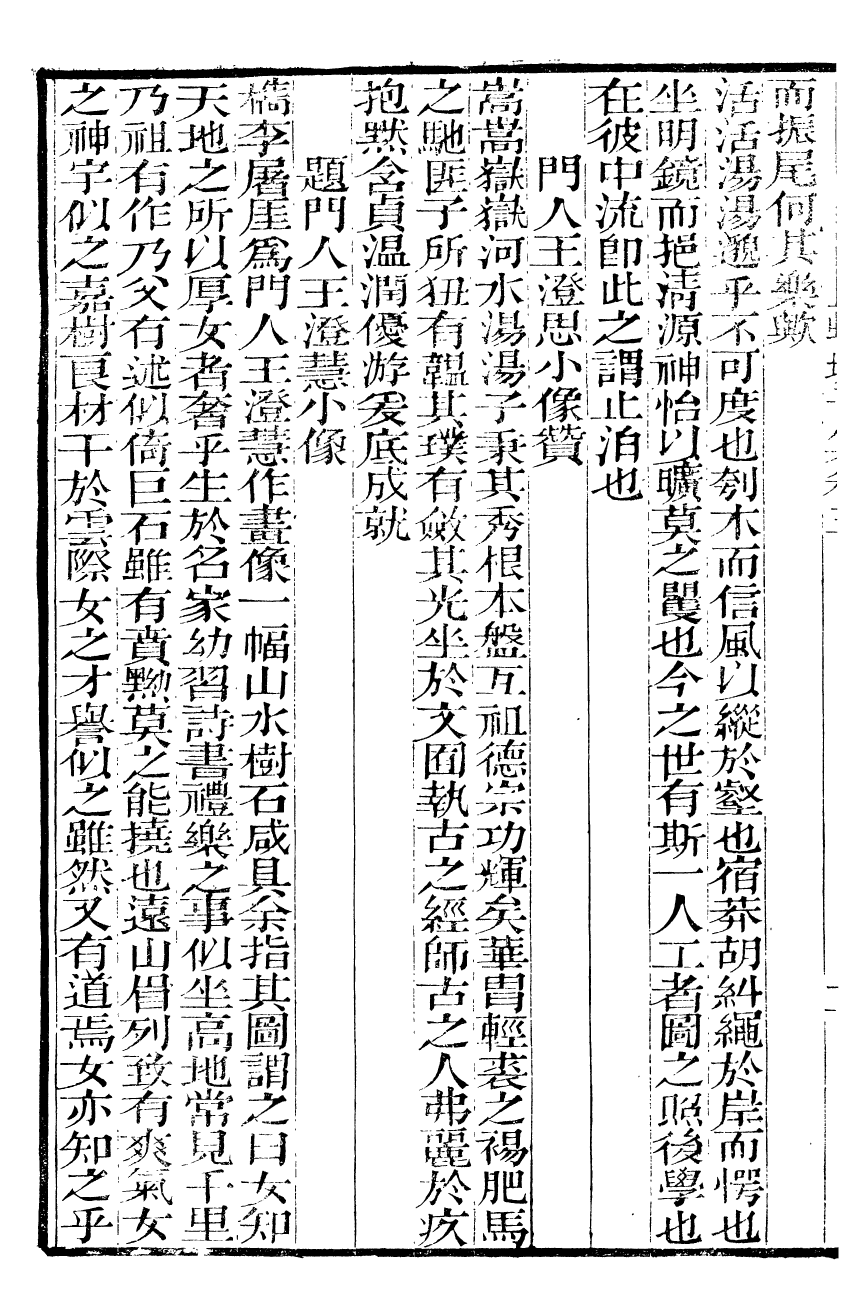 而振尾何其樂歟
活活湯湯邈乎不可度也刳木而信風以縱於壑也宿莽胡糾繩於岸而愕也
坐明鏡而挹清源神怡以曠莫之矍也今之世有斯一人工者圖之照後學也
在彼中流卽此之謂止泊也
門人王澄思小像贊
嵩嵩嶽嶽河水湯湯子秉其秀根本盤互祖德宗功輝矣華胄輕裘之裼肥馬
之馳匪子所狃有韞其璞有斂其光坐於文囿執古之經師古之人弗麗於疚
抱默含貞温潤優游爰底成就
題門人王澄慧小像
檇李屠厓爲門人王澄慧作畫像一幅山水樹石咸具余指其圖謂之曰女知
天地之所以厚女者奢乎生於名家幼習詩書禮樂之事似坐高地常見千里
乃祖有作乃父有述似倚巨石雖有賁黝莫之能撓也遠山眉列致有爽氣女
之神宇似之嘉樹良材干於雲際女之才譽似之雖然又有道焉女亦知之乎